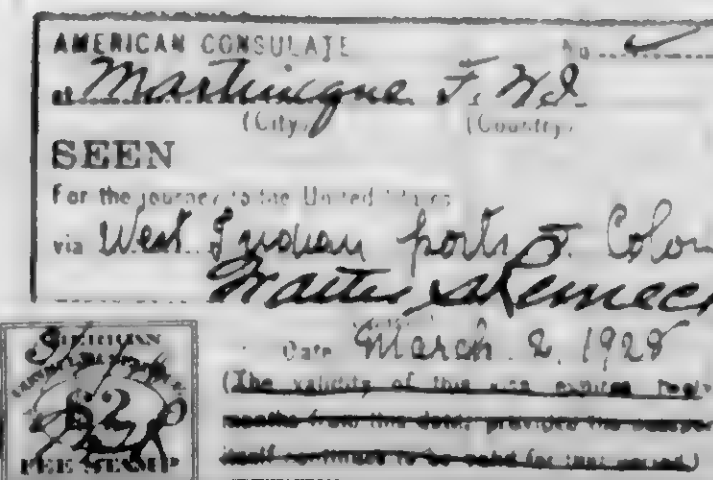 AMERICAN CONSULATE No.
at Martinique F. W.I.
(City) (Country)
SEEN
For the journey to the United States
via West Indian ports & Colon
Date March 2, 1928
(The validity of this visa expires
months from this date, provided the
itself continues to be valid for that period.)
AMERICAN
$2
FEE STAMP